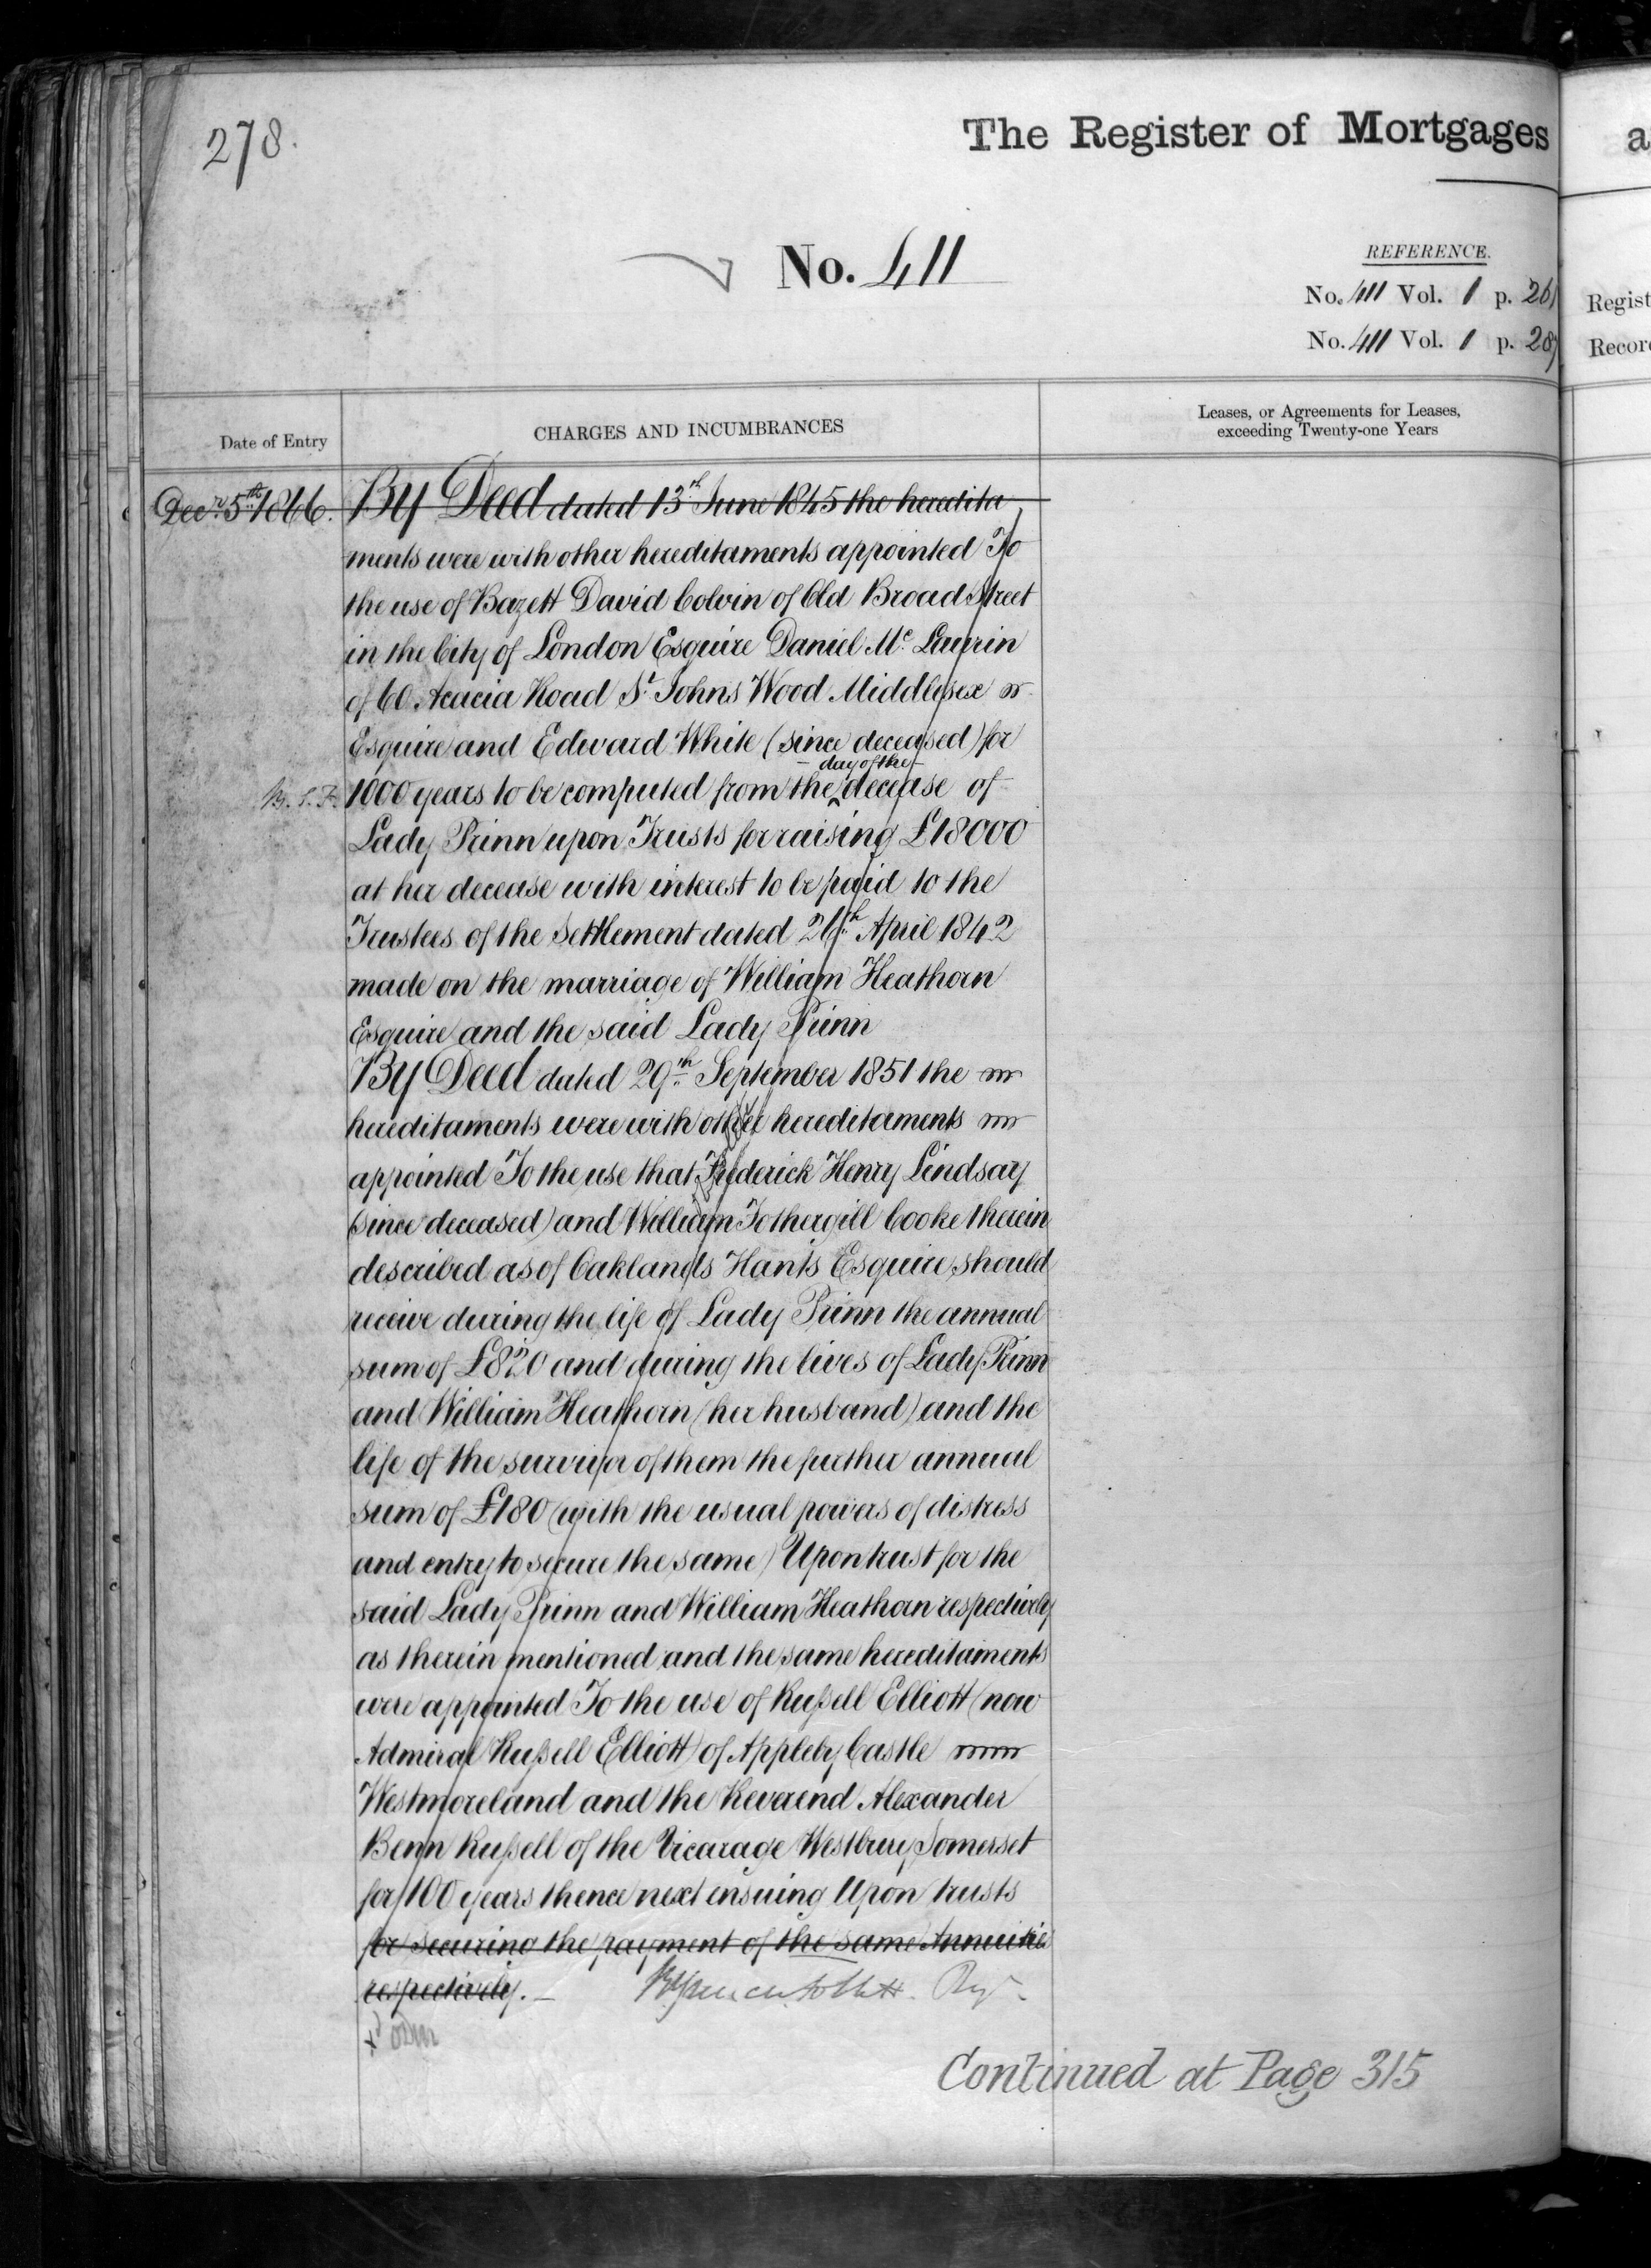 278.
The Register of Mortgages
No. 411
REFERENCE.
No. 411 Vol. 1 p. 261
No. 411 Vol. 1 p. 287
Regist
Recor
Date of Entry
CHARGES AND INCUMBRANCES
Leases, or Agreements for Leases,
exceeding Twenty-one Years
Decr. 5th 1866. By Deed dated 13th June 1845 the heredita
ments were with other hereditaments appointed To
the use of Bazett David Colvin of Old Broad Street
in the City of London Esquire Daniel Mc Laurin
of 60 Acacia Road St Johns Wood Middlesex
Esquire and Edward White (since deceased) for
day of the
1000 years to be computed from the decease of
Lady Prinn upon Trusts for raising £18000
at her decease with interest to be paid to the
Trustees of the Settlement dated 26th April 1842
made on the marriage of William Heathorn
Esquire and the said Lady Prinn
By Deed dated 29th September 1851 the
hereditaments were with other hereditaments
appointed To the use that Frederick Henry Lindsay
(since deceased) and William Fothergill Cooke therein
described as of Oaklands Hants Esquire should
receive during the life of Lady Prinn the annual
sum of £820 and during the lives of Lady Prinn
and William Heathorn (her husband) and the
life of the survivor of them the further annual
sum of £180 (with the usual powers of distress
and entry to secure the same) Upon trust for the
said Lady Prinn and William Heathorn respectively
as therein mentioned and the same hereditaments
were appointed To the use of Russell Elliott (now
Admiral Russell Elliott) of Appleby Castle
Westmoreland and the Reverend Alexander
Benn Russell of the Vicarage Westbury Somerset
for 100 years thence next ensuing Upon trusts
for securing the payment of the same Annuities
respectively.
Continued at Page 315